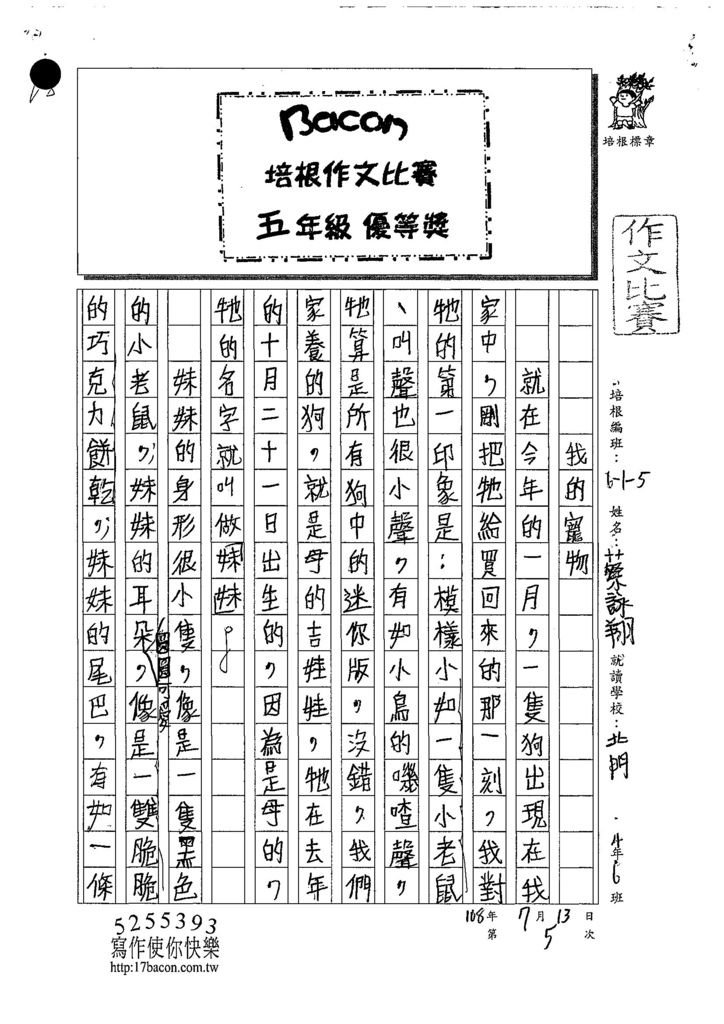 Bacon
培根作文比賽
五年級 優等獎
培根標章
作文比賽
培根編班：6-1-5 姓名：蔡詠翔 就讀學校：北門 4年6班
我的寵物
就在今年的一月，一隻狗出現在我
家中，剛把牠給買回來的那一刻，我對
牠的第一印象是：模樣小如一隻小老鼠
、叫聲也很小聲，有如小鳥的嘰喳聲，
牠算是所有狗中的迷你版，沒錯，我們
家養的狗，就是母的吉娃娃，牠在去年
的十月二十一日出生的，因為是母的，
牠的名字就叫做妹妹。
妹妹的身形很小隻，像是一隻黑色
的小老鼠，妹妹的耳朵圓圓可愛，像是一雙脆脆
的巧克力餅乾，妹妹的尾巴，有如一條
108年7月13日
第5次
5255393
寫作使你快樂
http:17bacon.com.tw